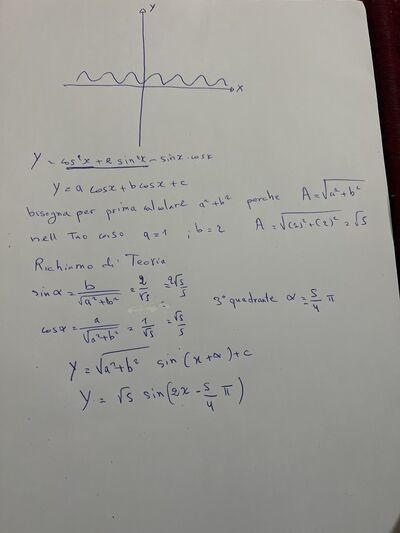 y
x
Y = cos²x + 2 sin²x - sinx · cosx
Y = a cosx + b cosx + c
bisogna per prima calcolare a² + b² perche A = √a² + b²
nell Tuo caso a = 1 ; b = 2 A = √(1)² + (2)² = √5
Richiamo di Teoria
sin α = b/√a² + b² = 2/√5 = 2√5/5
3° quadrante α = 5/4 π
cos α = a/√a² + b² = 1/√5 = √5/5
Y = √a² + b² sin (x + α) + c
Y = √5 sin(2x - 5/4 π)